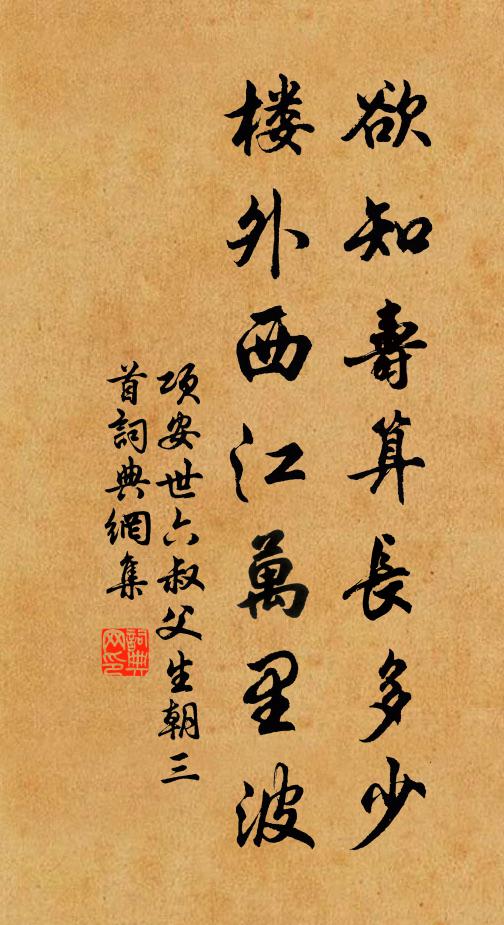 欲知壽算長多少
楼外西江萬里波
項安世六叔父生朝三
首詞典網集
詞典
网印